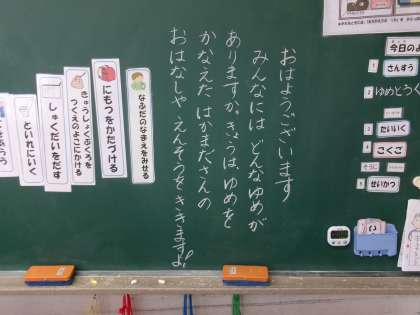 おはようございます
みんなには どんなゆめが
ありますか。きょうは ゆめを
かなえた はかまださんの
おはなしや えんそうをききますよ!
なふだのなまえをみせる
にもつをかたづける
きゅうしょくぶくろを
つくえのよこにかける
しゅくだいをだす
といれにいく
今日のよ
1 さんすう
2 ゆめとうく
3 たいいく
4 こくご
そうじ
5 せいかつ